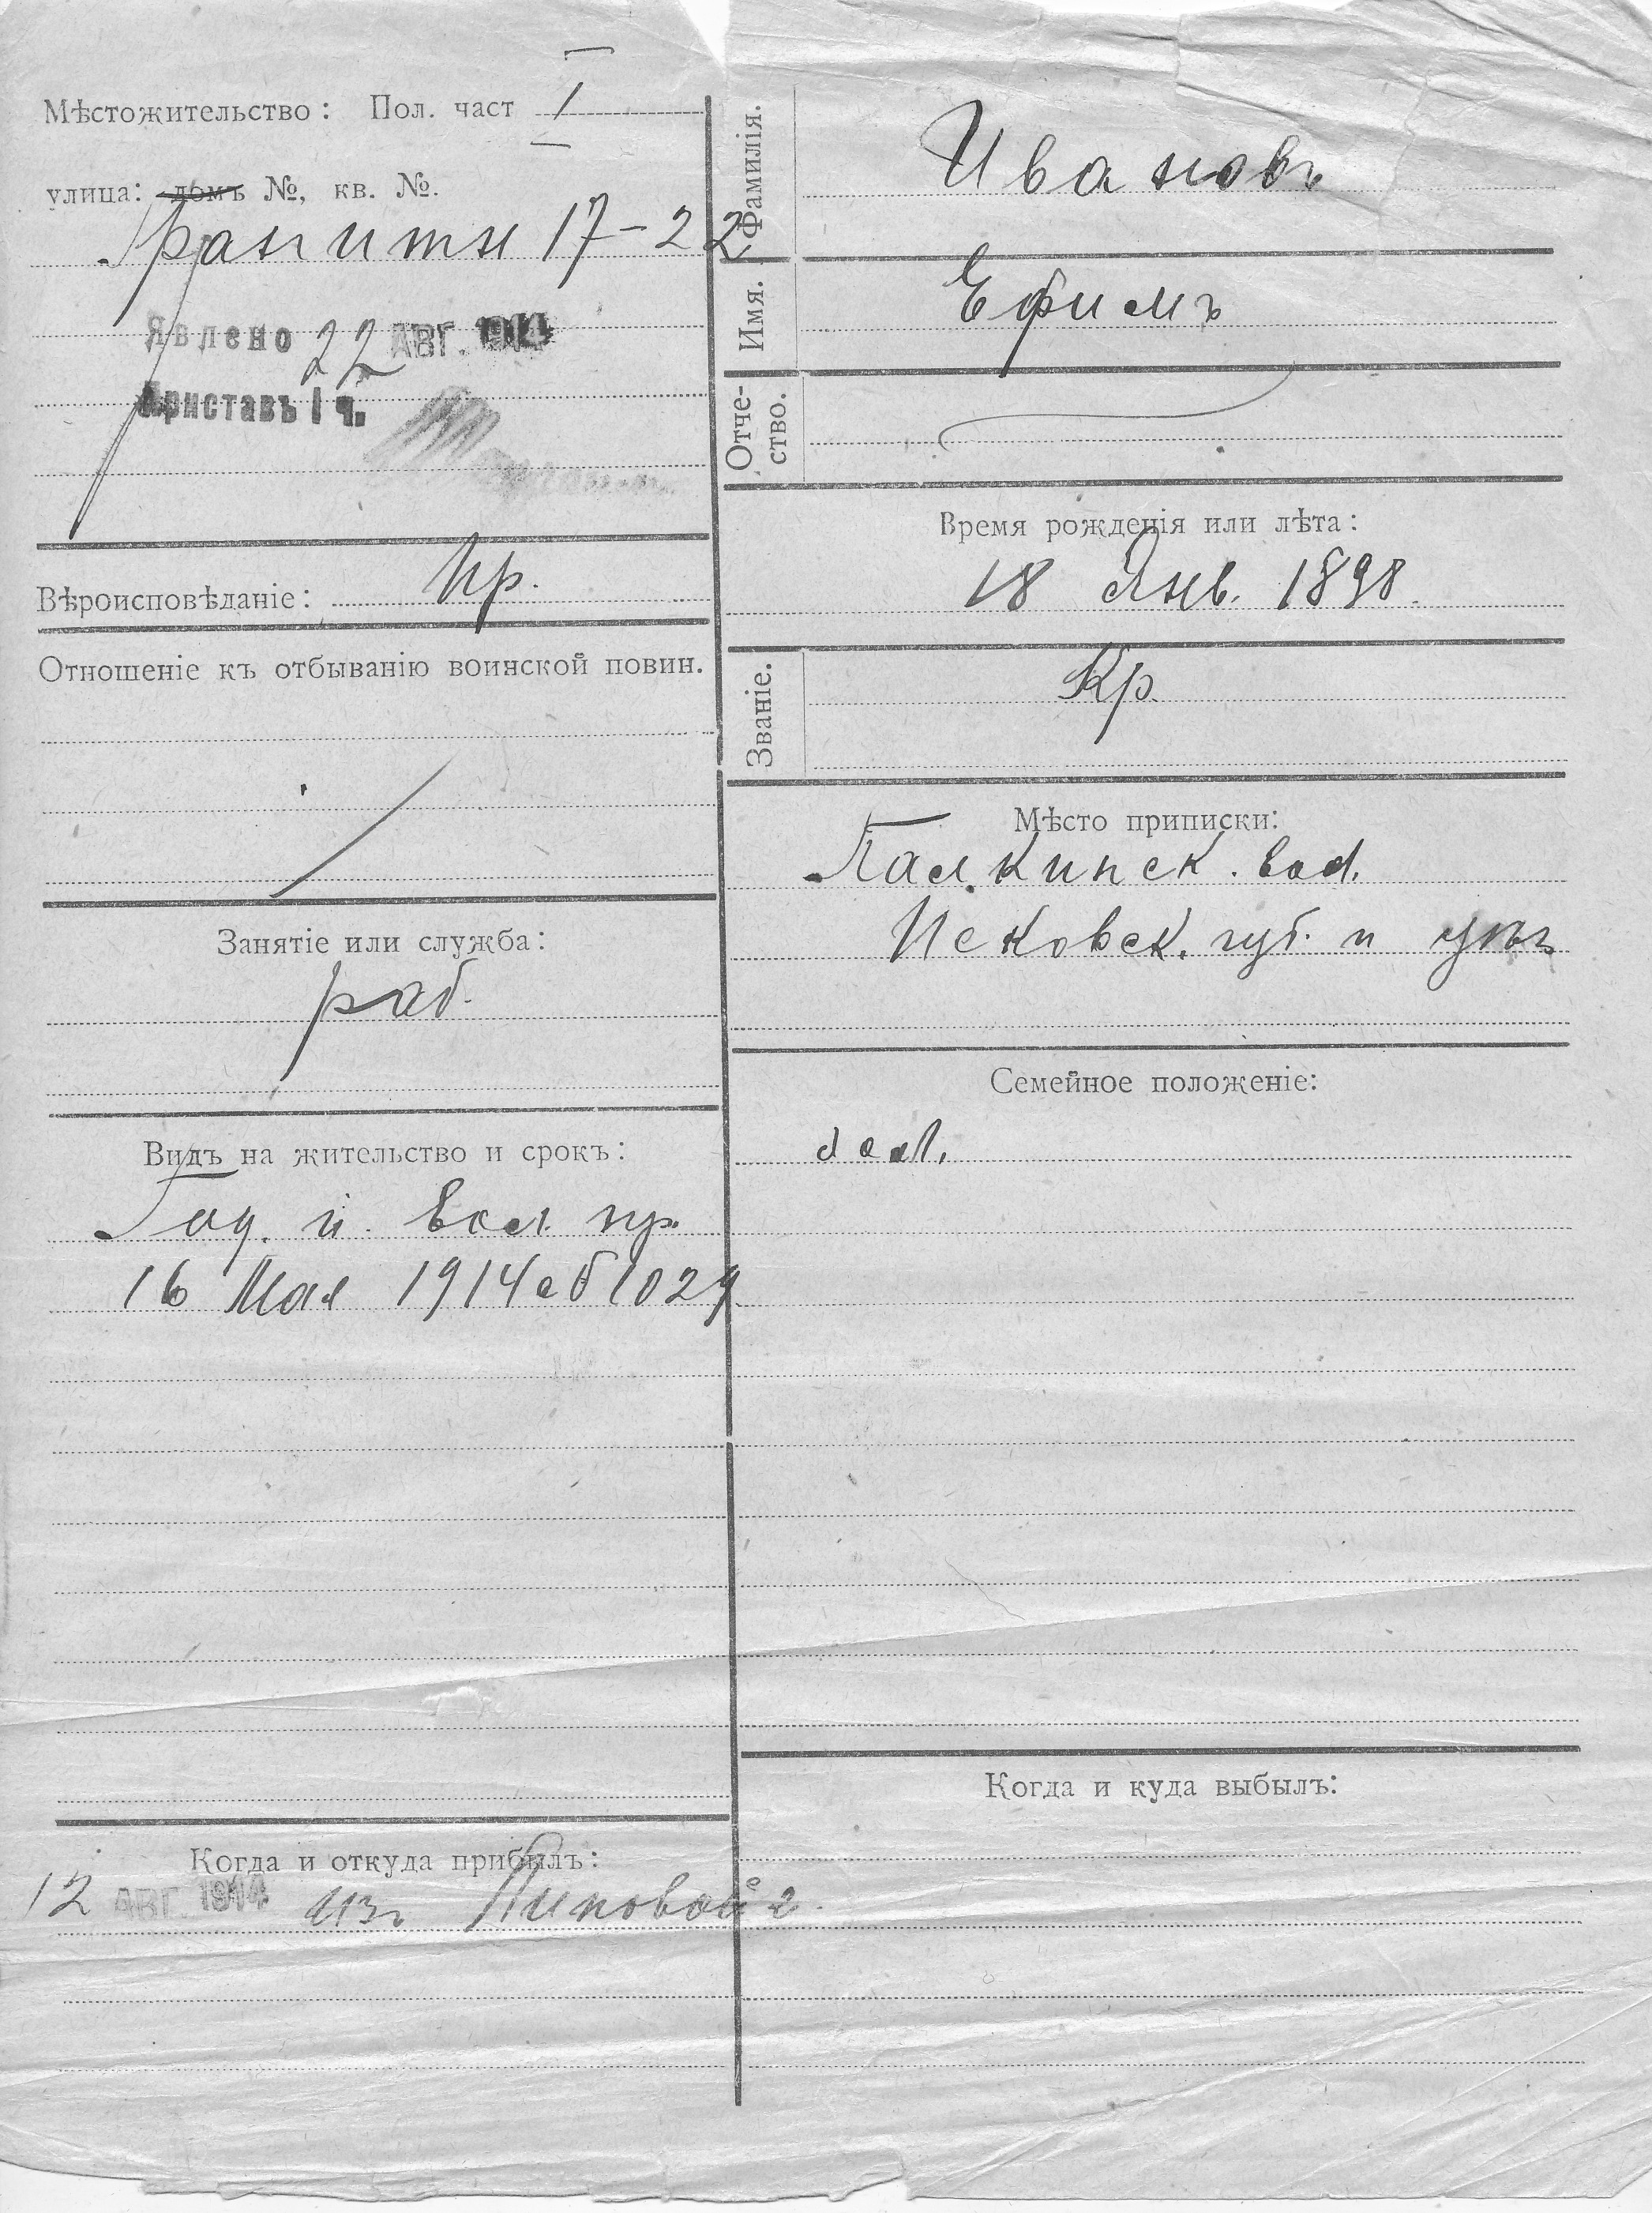 Мѣстожительство: Пол. част I
улица: домъ №, кв. №.
Гранитн 17-22
Явлено 22 АВГ. 1914
Приставъ I ч.
Вѣроисповѣданіе: пр.
Отношеніе къ отбыванію воинской повин.
Занятіе или служба:
раб.
Видъ на жительство и срокъ:
Год. п. Вол. пр.
16 Мая 1914 с б 1029
Когда и откуда прибылъ:
12 АВГ. 1914 изъ Липовой 2
Фамилія. Ивановъ
Имя. Ефимъ
Отче-
ство.
Время рожденія или лѣта:
18 Янв. 1898.
Званіе. Кр.
Мѣсто приписки:
Палкинск. вол.
Псковск. губ. и уѣз
Семейное положеніе:
хол.
Когда и куда выбылъ: